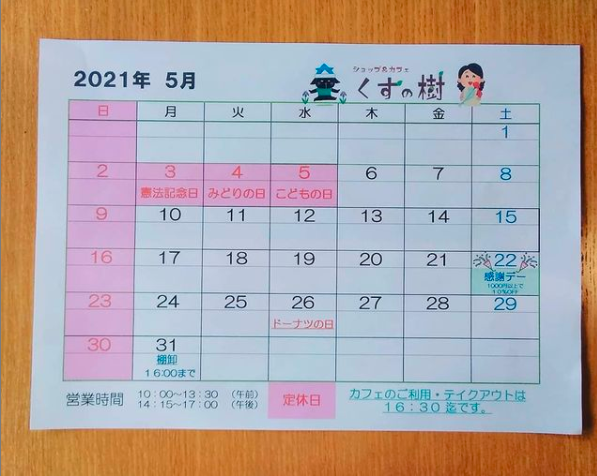 2021年 5月
ショップ&カフェ
くすの樹
日 月 火 水 木 金 土
1
2 3 4 5 6 7 8
憲法記念日 みどりの日 こどもの日
9 10 11 12 13 14 15
16 17 18 19 20 21 22
感謝デー
1000円以上で
10%OFF
23 24 25 26 27 28 29
ドーナツの日
30 31
棚卸
16:00まで
営業時間 10:00~13:30 (午前)
14:15~17:00 (午後)
定休日
カフェのご利用・テイクアウトは
16:30 迄です。